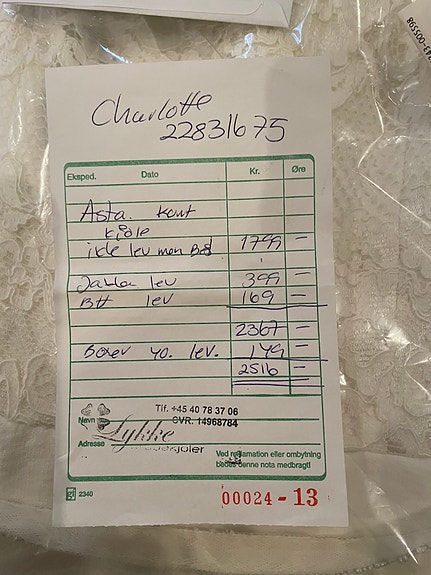 Charlotte
22831675
Eksped. Dato Kr. Øre
Asta. kont
kjole
ikke lev men Bet 1799 -
lev 399 -
BH lev 169 -
2367 -
Boxer 40. lev. 149 -
2516 -
Tlf. +45 40 78 37 06
Navn CVR. 14968784
Lykke
Adresse
Ved reklamation eller ombytning
bedes denne nota medbragt!
gf 2340
00024 - 13